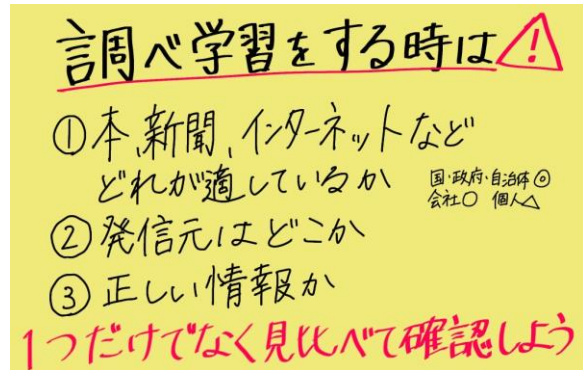 調べ学習をする時は⚠
①本、新聞、インターネットなど
どれが適しているか
国・政府・自治体◎
会社○ 個人△
②発信元はどこか
③正しい情報か
1つだけでなく見比べて確認しよう